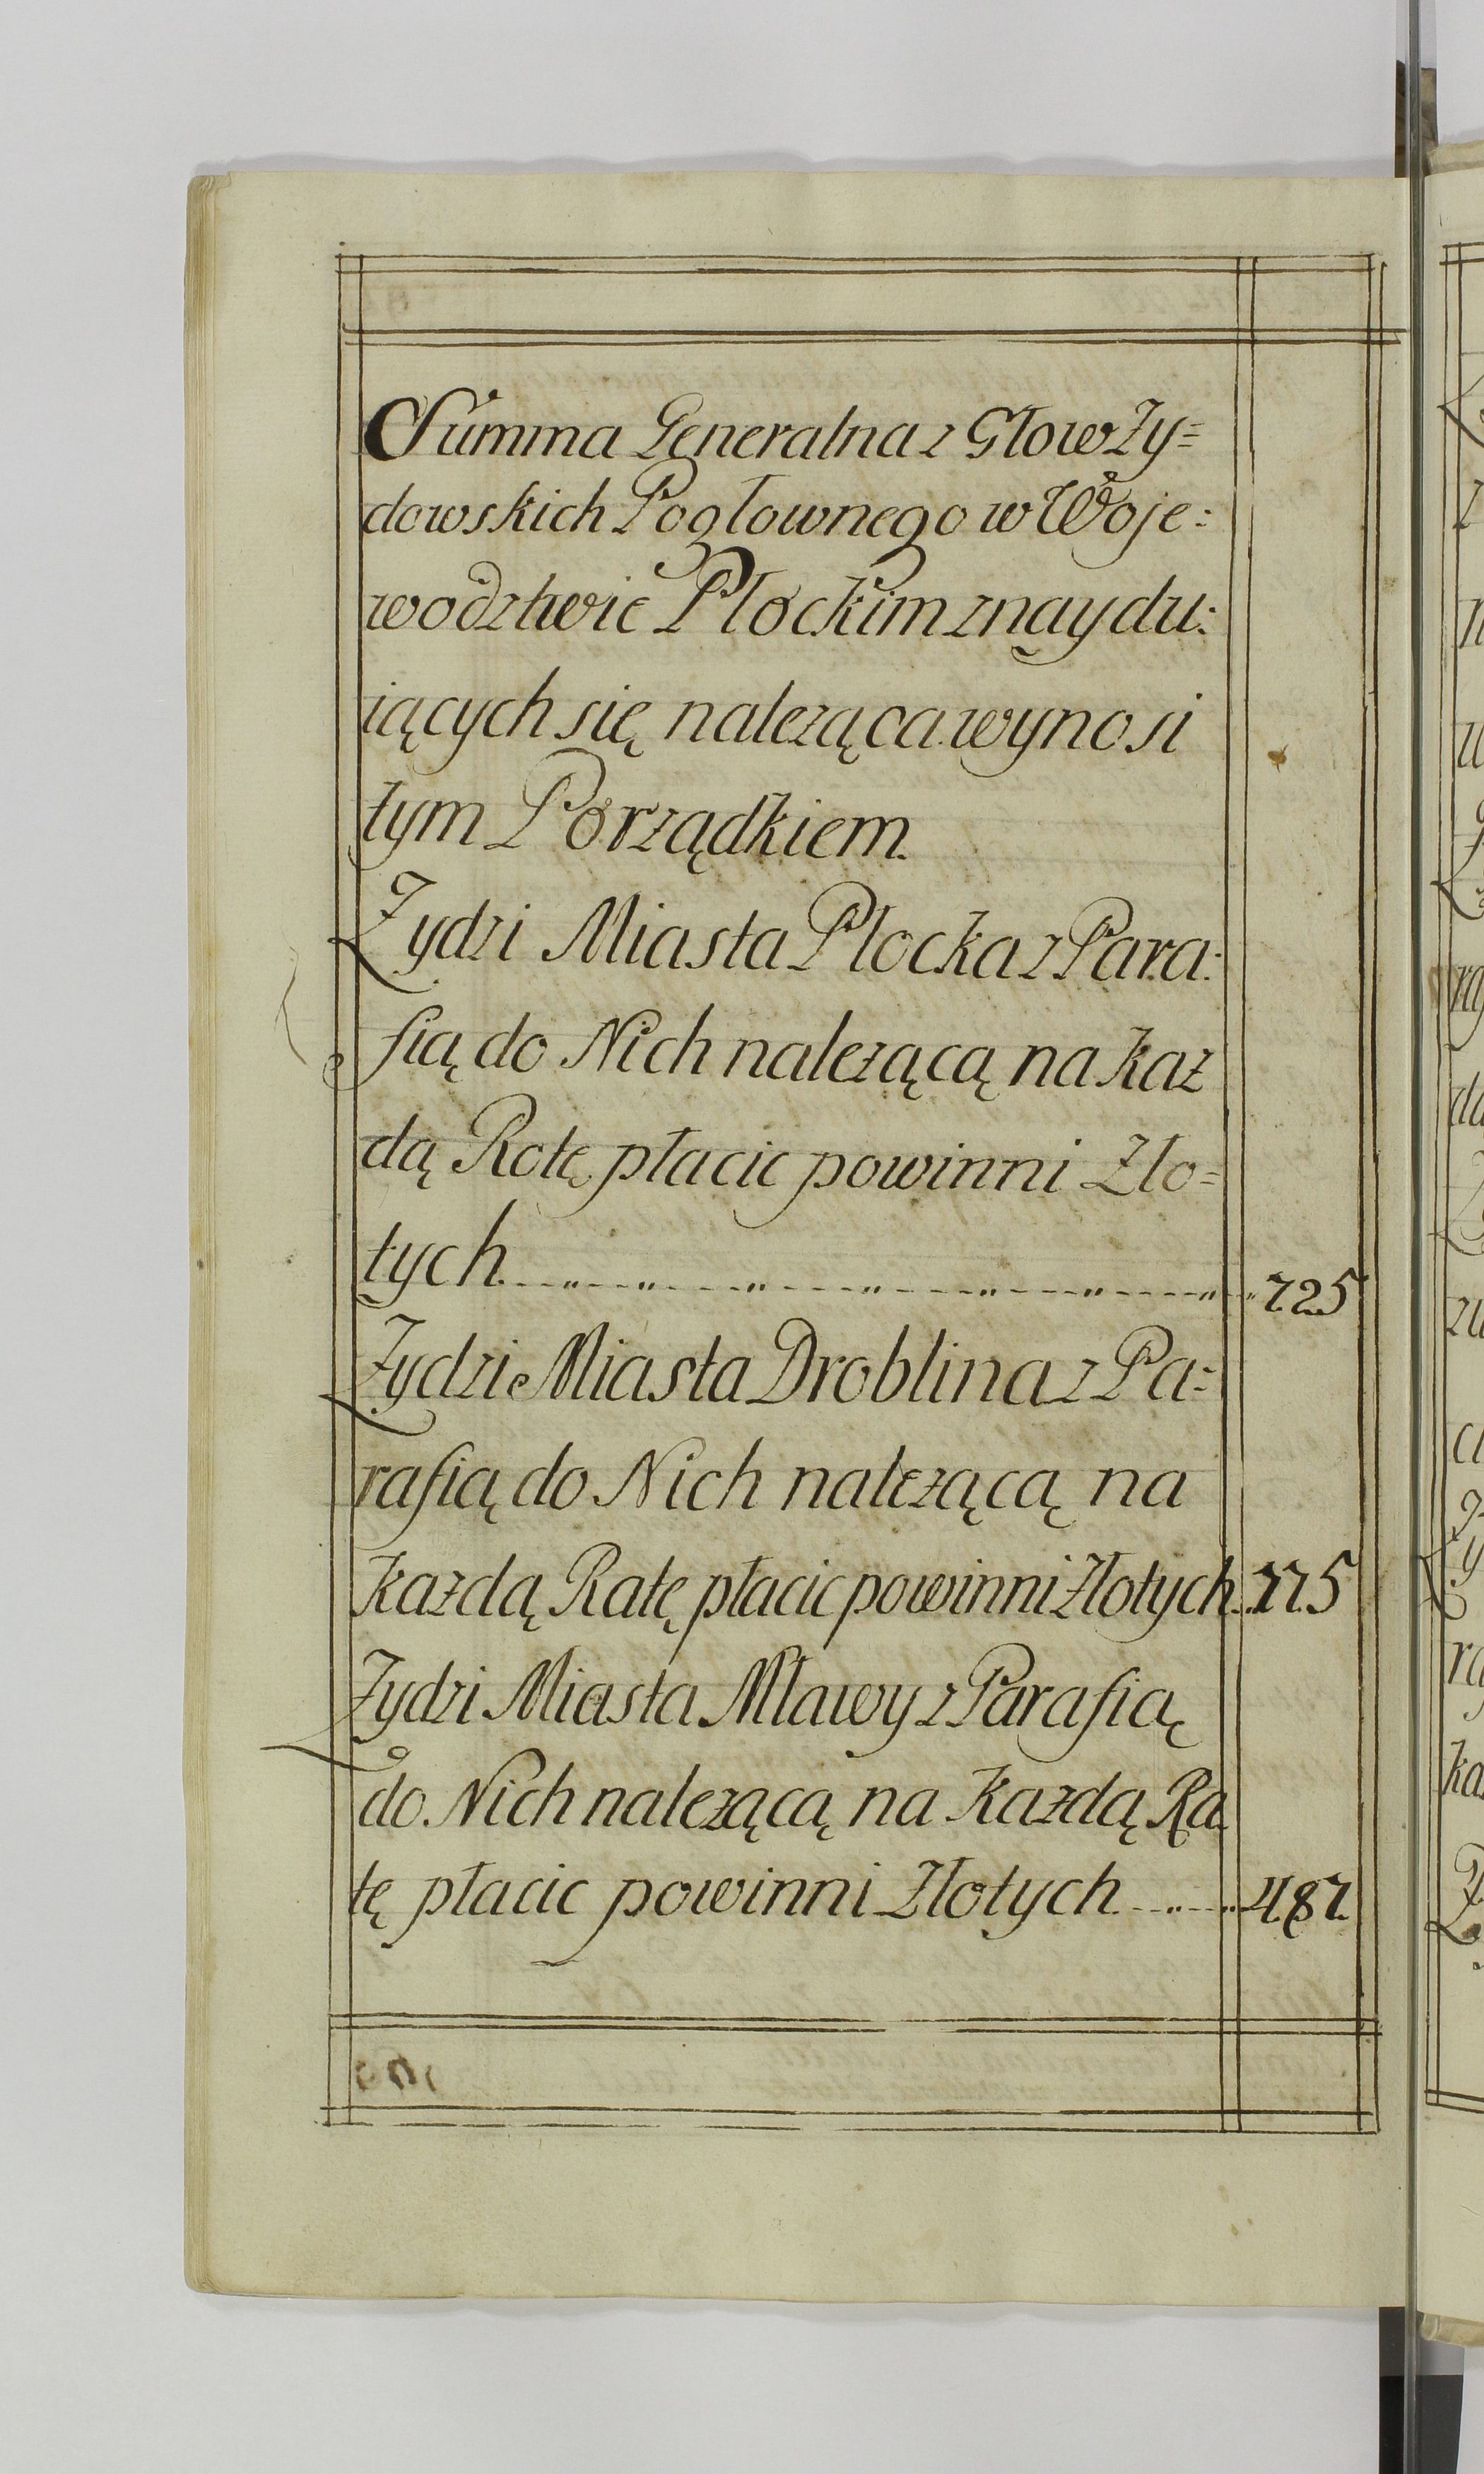 Summa Generalna z Głow Ży=
dowskich Pogłownego w Woje:
wodztwie Płockim znaydu:
iących się należąca wynosi
tym Porządkiem.
Żydzi Miasta Płocka z Para:
fią do Nich należącą na Każ
dą Ratę płacic powinni Zło=
tych 725
Żydzi Miasta Droblina z Pa:
rafią do Nich należącą na
Każdą Ratę płacic powinni Złotych
Żydzi Miasta Mławy z Parafią
do Nich należącą na Każdą Ra
tę płacic powinni Złotych 487